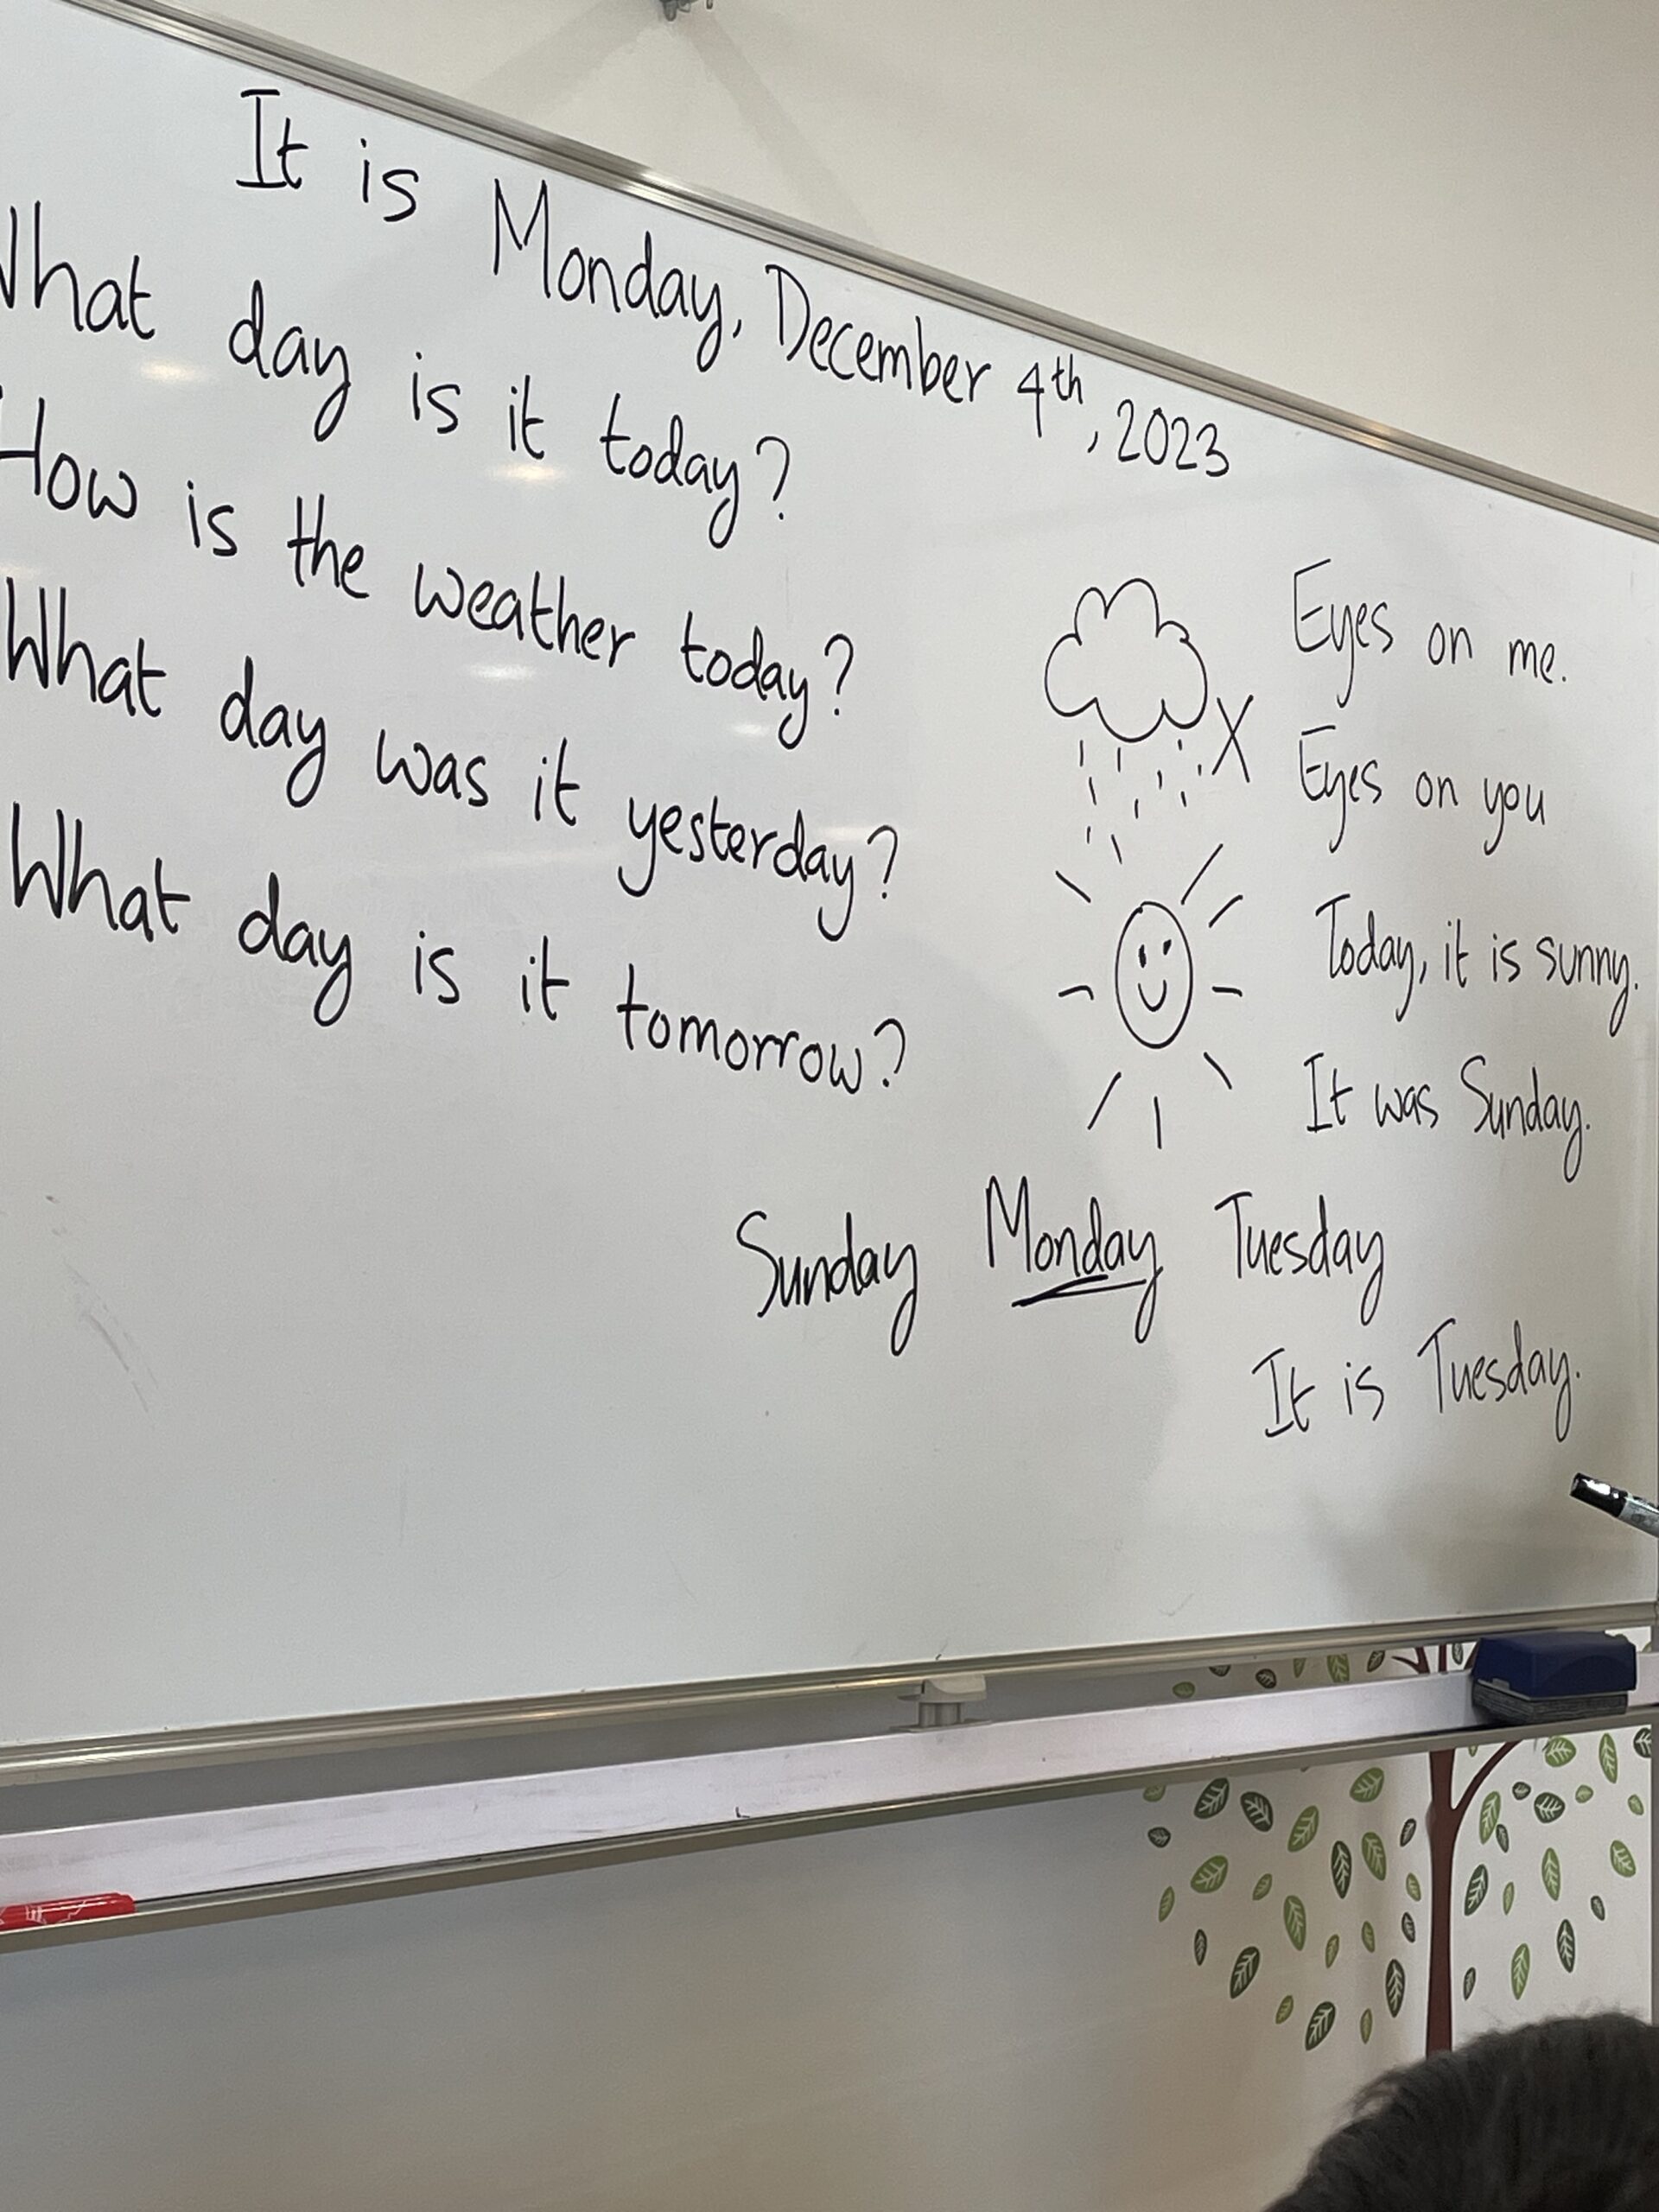 It is Monday, December 4th, 2023
What day is it today?
How is the weather today?
What day was it yesterday?
What day is it tomorrow?
X
Eyes on me.
Eyes on you
Today, it is sunny.
It was Sunday.
Sunday Monday Tuesday
It is Tuesday.